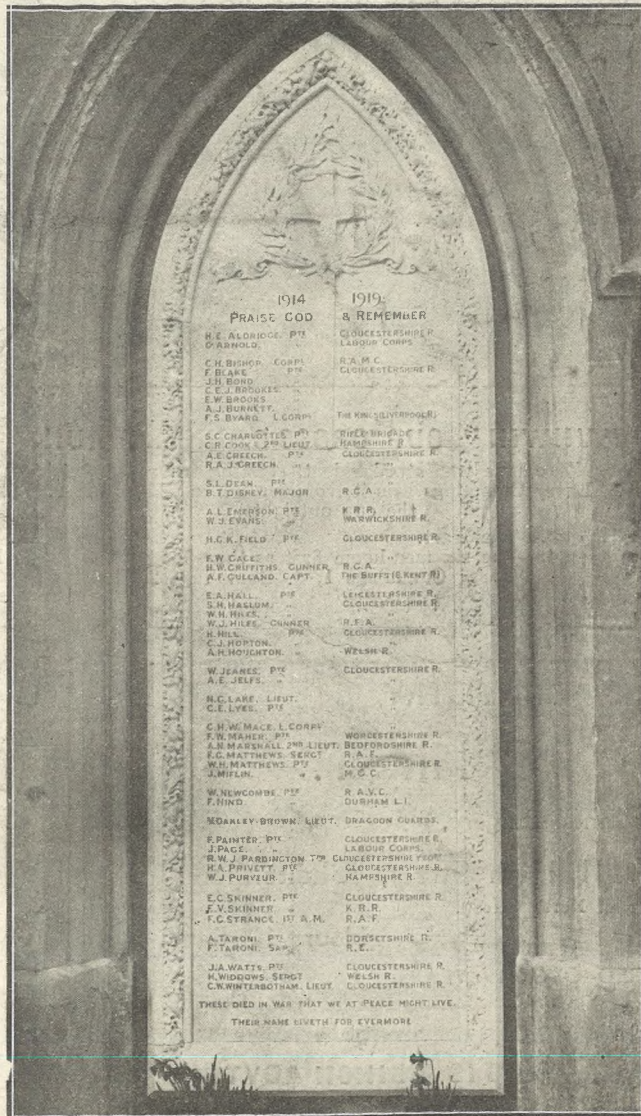 1914 1919
PRAISE GOD & REMEMBER
H.E. ALDRIDGE. PTE GLOUCESTERSHIRE R.
D. ARNOLD. " LABOUR CORPS
C.H. BISHOP. CORPL R.A.M.C.
F. BLAKE PTE GLOUCESTERSHIRE R.
J.H. BOND
C.E.J. BROOKES "
E.W. BROOKS
A.J. BURNETT.
F.S. BYARD. L.CORPL THE KINGS (LIVERPOOL R.)
S.C. CHARLOTTES. PTE RIFLE BRIGADE
C.R. COOK 2ND LIEUT HAMPSHIRE R.
A.E. CREECH. PTE GLOUCESTERSHIRE R.
R.A.J. CREECH. " "
S.L. DEAN. PTE "
B.T. DISNEY. MAJOR R.G.A.
A.L. EMERSON. PTE K.R.R.
W.J. EVANS. " WARWICKSHIRE R.
H.G.K. FIELD PTE GLOUCESTERSHIRE R.
F.W. GALE. " "
H.W. GRIFFITHS GUNNER R.G.A.
A.F. GULLAND. CAPT. THE BUFFS (E. KENT R.)
E.A. HALL. PTE LEICESTERSHIRE R.
S.H. HALLUM. " GLOUCESTERSHIRE R.
W.H. HILES. " "
W.J. HILES GUNNER R.F.A.
H. HILL. PTE GLOUCESTERSHIRE R.
C.J. HOPTON. " "
A.H. HOUGHTON. " WELSH R.
W. JEANES. PTE GLOUCESTERSHIRE R.
A.E. JELFS. " "
N.G. LAKE. LIEUT. "
C.E. LYES. PTE "
C.H.W. MACE. L.CORPL "
F.W. MAHER. PTE WORCESTERSHIRE R.
A.N. MARSHALL. 2ND LIEUT. BEDFORDSHIRE R.
F.G. MATTHEWS. SERGT R.A.F.
W.H. MATTHEWS. PTE GLOUCESTERSHIRE R.
J. MIFLIN. " M.G.C.
W. NEWCOMBE. PTE R.A.V.C.
F. HIND. " DURHAM L.I.
OAKLEY-BROWN. LIEUT. DRAGOON GUARDS.
F. PAINTER. PTE GLOUCESTERSHIRE R.
J. PAGE. " LABOUR CORPS.
R.W.J. PARDINGTON TPR GLOUCESTERSHIRE YEO.
H.A. PRIVETT. PTE GLOUCESTERSHIRE R.
W.J. PURVEUR. " HAMPSHIRE R.
E.C. SKINNER. PTE GLOUCESTERSHIRE R.
E.V. SKINNER " K.R.R.
F.G. STRANGE. 1ST A.M. R.A.F.
A. TARONI. PTE DORSETSHIRE R.
F. TARONI. SAPR R.E.
J.A. WATTS. PTE GLOUCESTERSHIRE R.
H. WIDDOWS. SERGT WELSH R.
C.W. WINTERBOTHAM. LIEUT. GLOUCESTERSHIRE R.
THESE DIED IN WAR THAT WE AT PEACE MIGHT LIVE.
THEIR NAME LIVETH FOR EVERMORE